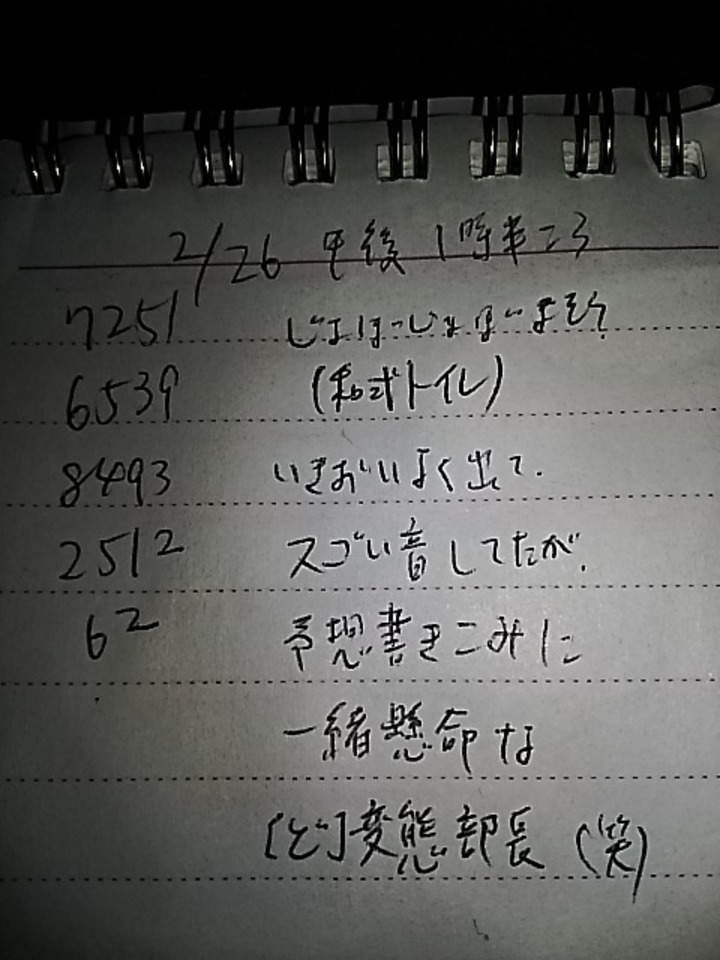 2/26 午後1時半ころ
7251 じょぼーじょぼーまそく
6539 (和式トイレ)
8493 いきおいよく出て、
2512 スゴい音してたが、
62 予想書きこみに
一緒懸命な
[ど]変態部長 (笑)